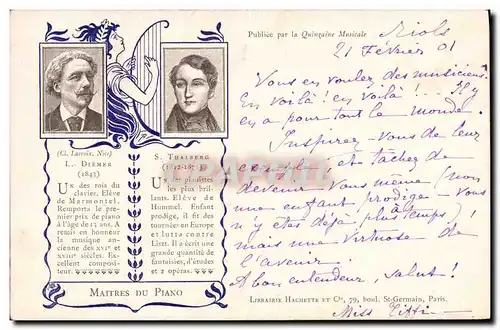 Publiée par la Quinzaine Musicale
Riols
21 Février 01
(Cl. Larroix, Nice)
L. DIÉMER
(1843)
UN des rois du
clavier. Elève
de Marmontel.
Remporta le pre-
mier prix de piano
à l'âge de 13 ans. A
remis en honneur
la musique an-
cienne des XVIe et
XVIIe siècles. Ex-
cellent composi-
teur.
S. THALBERG
UN des pianistes
les plus bril-
lants. Elève de
Hummel. Enfant
prodige, il fit des
tournées en Europe
et lutta contre
Liszt. Il a écrit une
grande quantité de
fantaisies, d'études
et 2 opéras.
MAITRES DU PIANO
Vous en voulez des musiciens.
En voilà! en voilà!... Il y
en a pour tout le monde.
Inspirez vous de leur
exemple et tâchez de
devenir vous même (non
une enfant prodige (vous
n'y êtes déjà plus à temps)!
mais une virtuose de
l'avenir.
A bon entendeur, salut!
LIBRAIRIE HACHETTE ET Cie, 79, boul. St-Germain, Paris.
Miss